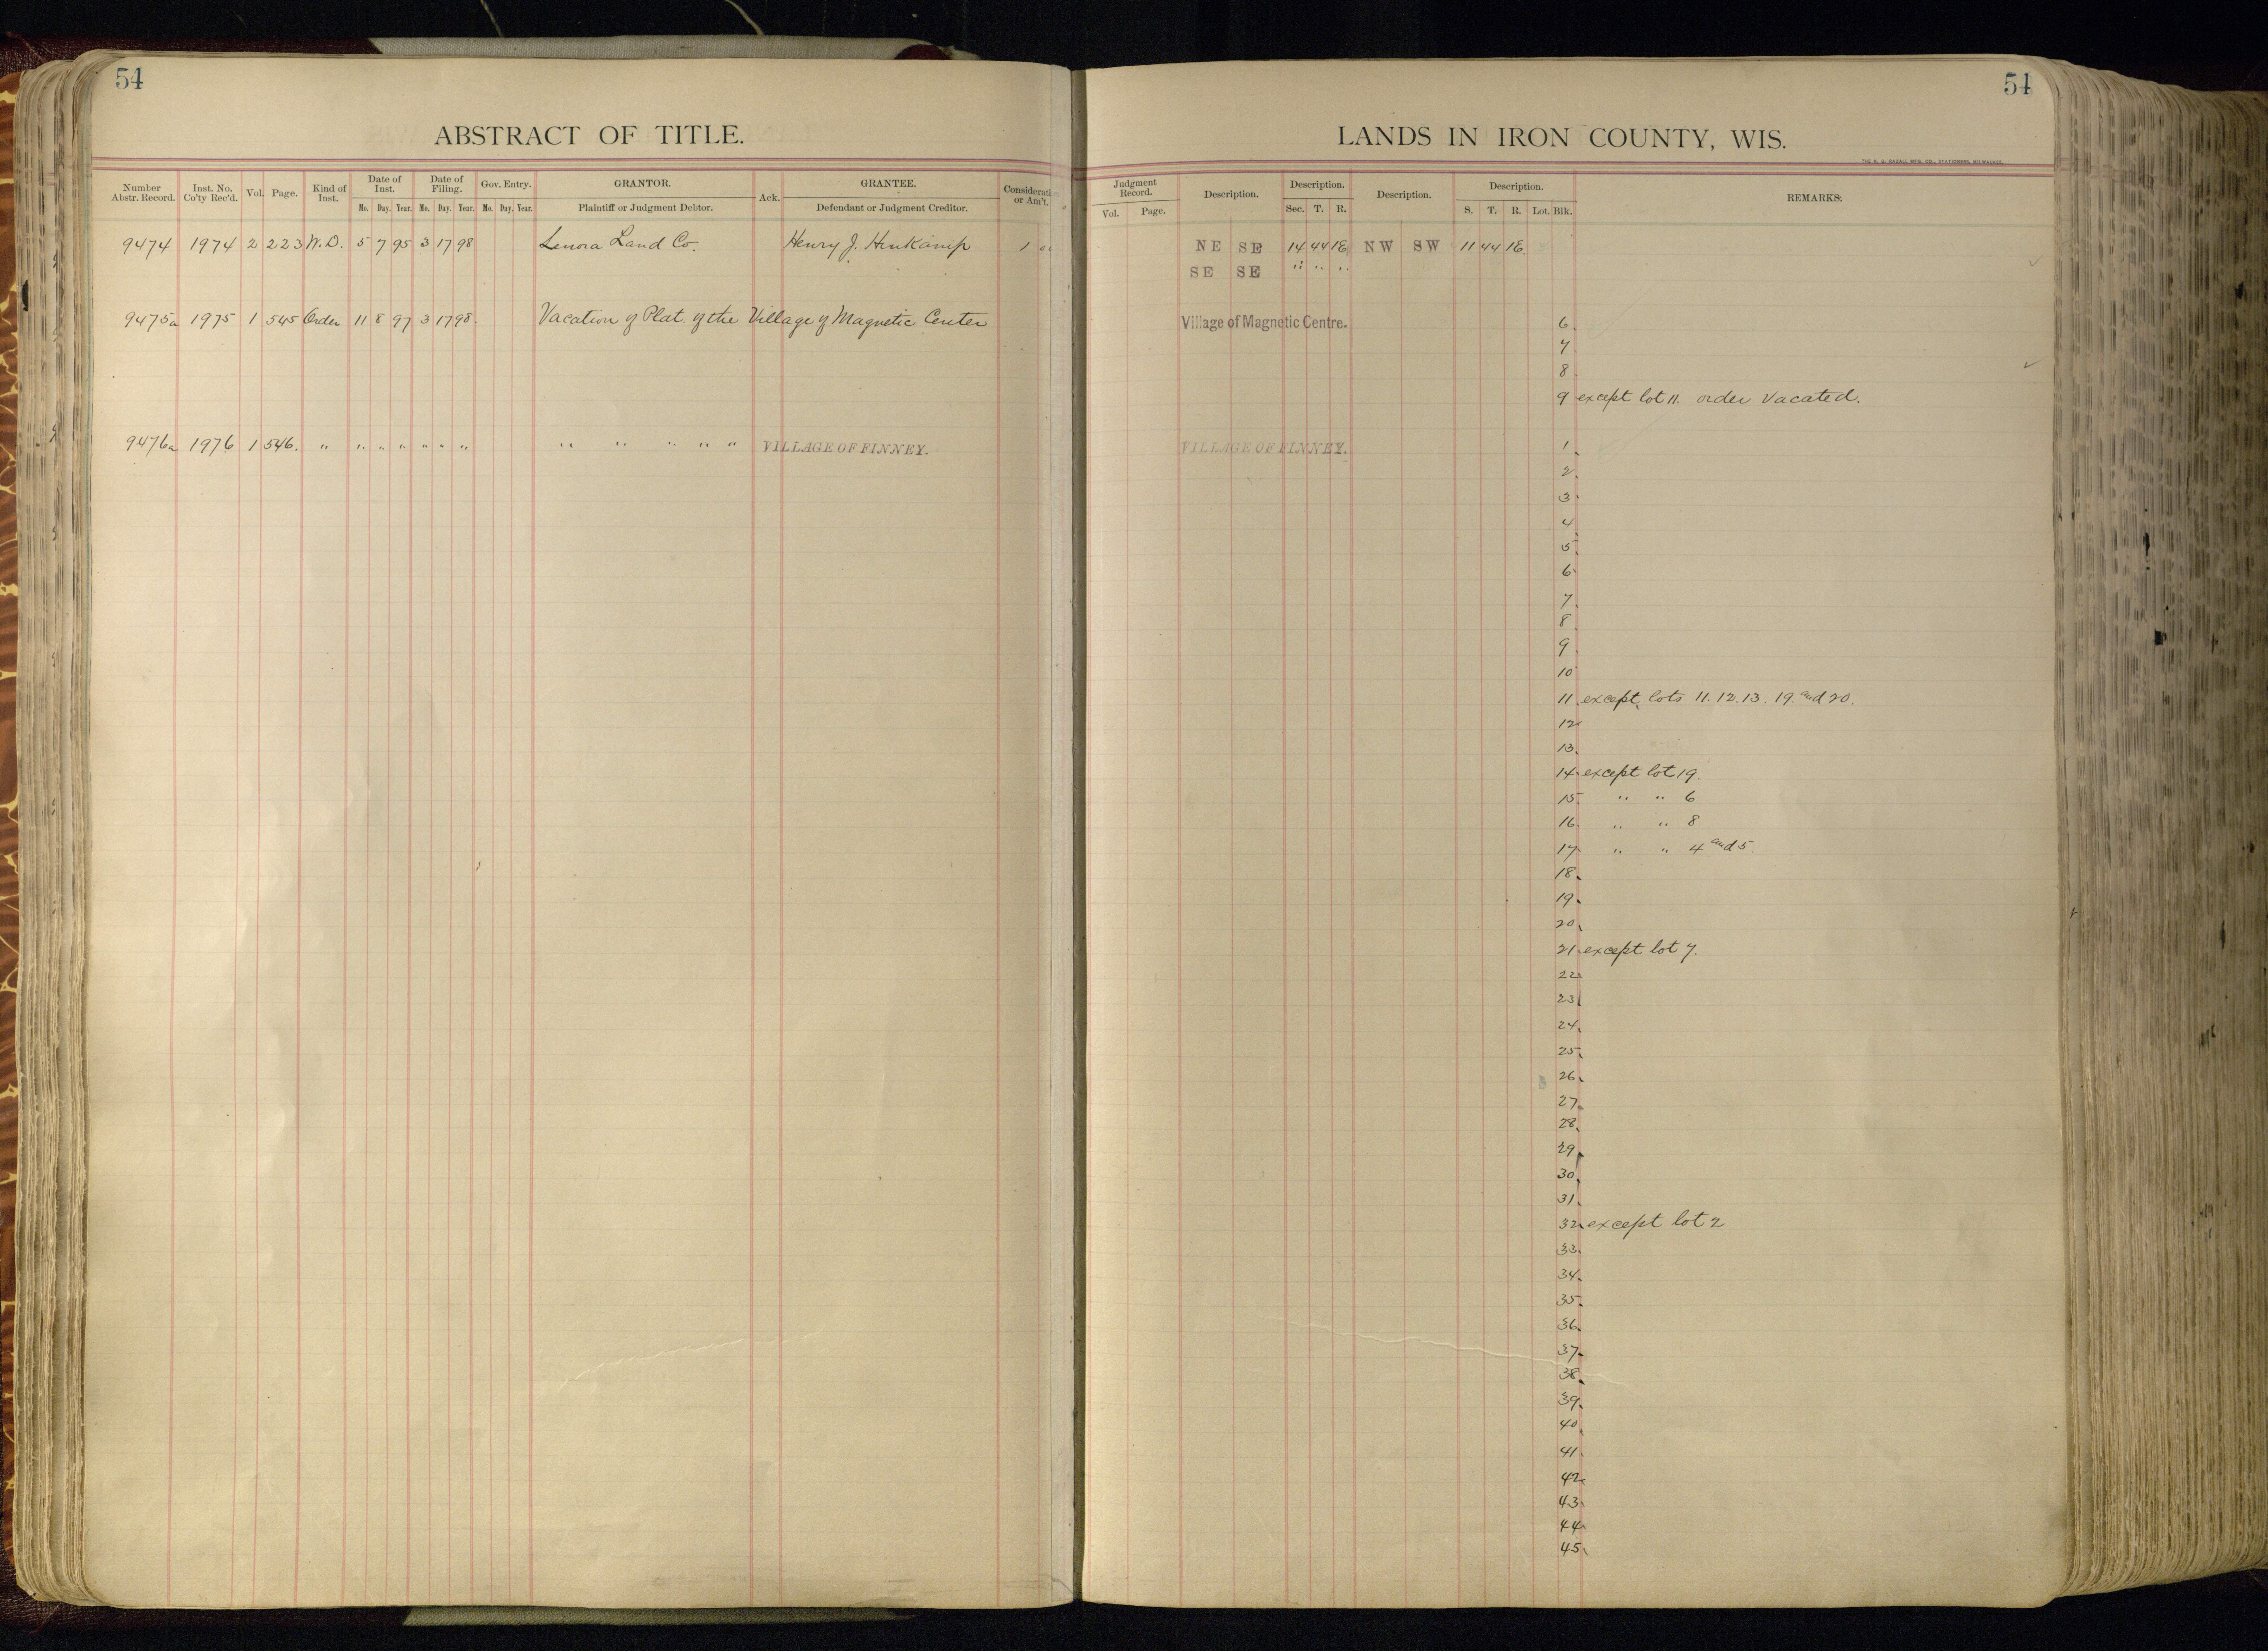 54
54
ABSTRACT OF TITLE.
LANDS IN IRON COUNTY, WIS.
Number Abstr. Record. Inst. No. Co'ty Rec'd. Vol. Page. Kind of Inst. Date of Inst. Mo. Day. Year. Date of Filing. Mo. Day. Year. Gov. Entry. Mo. Day. Year. GRANTOR. Plaintiff or Judgment Debtor. Ack. GRANTEE. Defendant or Judgment Creditor. Considerati or Am't.
Judgment Record. Vol. Page. Description. Description. Sec. T. R. Description. Description. S. T. R. Lot. Blk. REMARKS.
9474 1974 2 223 W.D. 5 7 95 3 17 98 Lenora Land Co. Henry J. 1 NE SE 14 44 1E NW SW 11 44 1E
SE SE " " "
9475a 1975 1 545 Order 11 8 97 3 17 98. Vacation of Plat of the Village of Magnetic Center Village of Magnetic Centre. 6
7
8
9 except lot 11. order vacated.
9476a 1976 1 546. " " " " " " " " " " " " VILLAGE OF FINNEY. VILLAGE OF FINNEY. 1
2
3
4
5
6
7
8
9
10
11 except lots 11. 12. 13. 19. and 20.
12
13
14 except lot 19.
15 " " 6
16 " " 8
17 " " 4 and 5.
18
19
20
21 except lot 7.
22
23
24
25
26
27
28
29
30
31
32 except lot 2
33
34
35
36
37
38
39
40
41
42
43
44
45